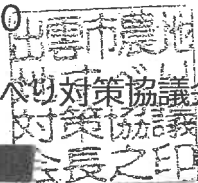 出雲市農
べり対策協議
対策協議
会長之印